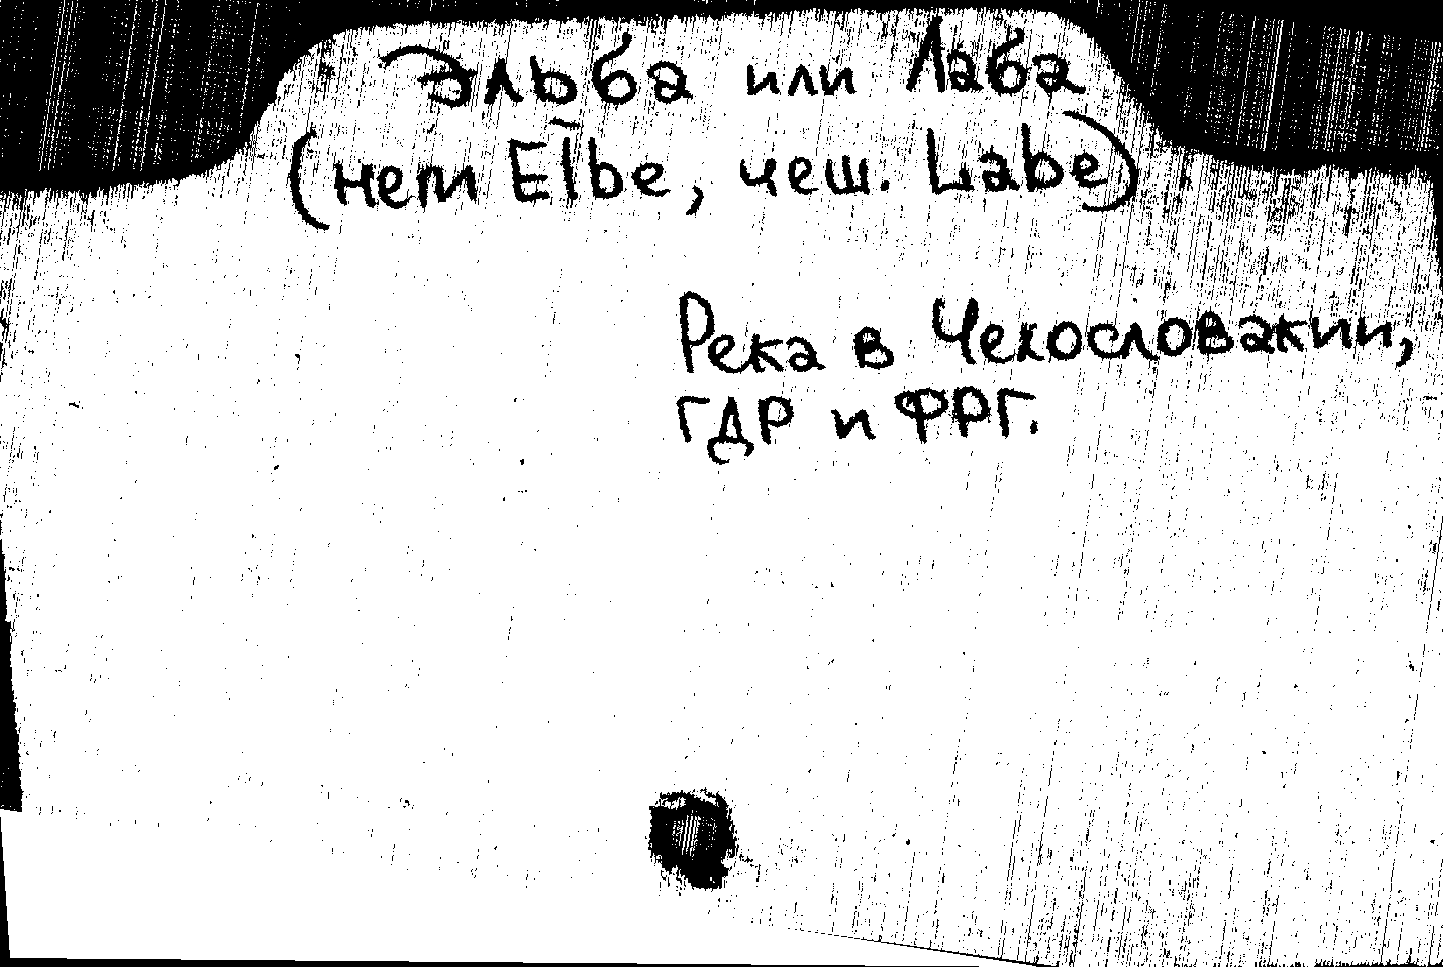 Эльба или Лаба
(нем Elbe, чеш. Labe)
Река в Чехословакии,
ГДР и ФРГ.